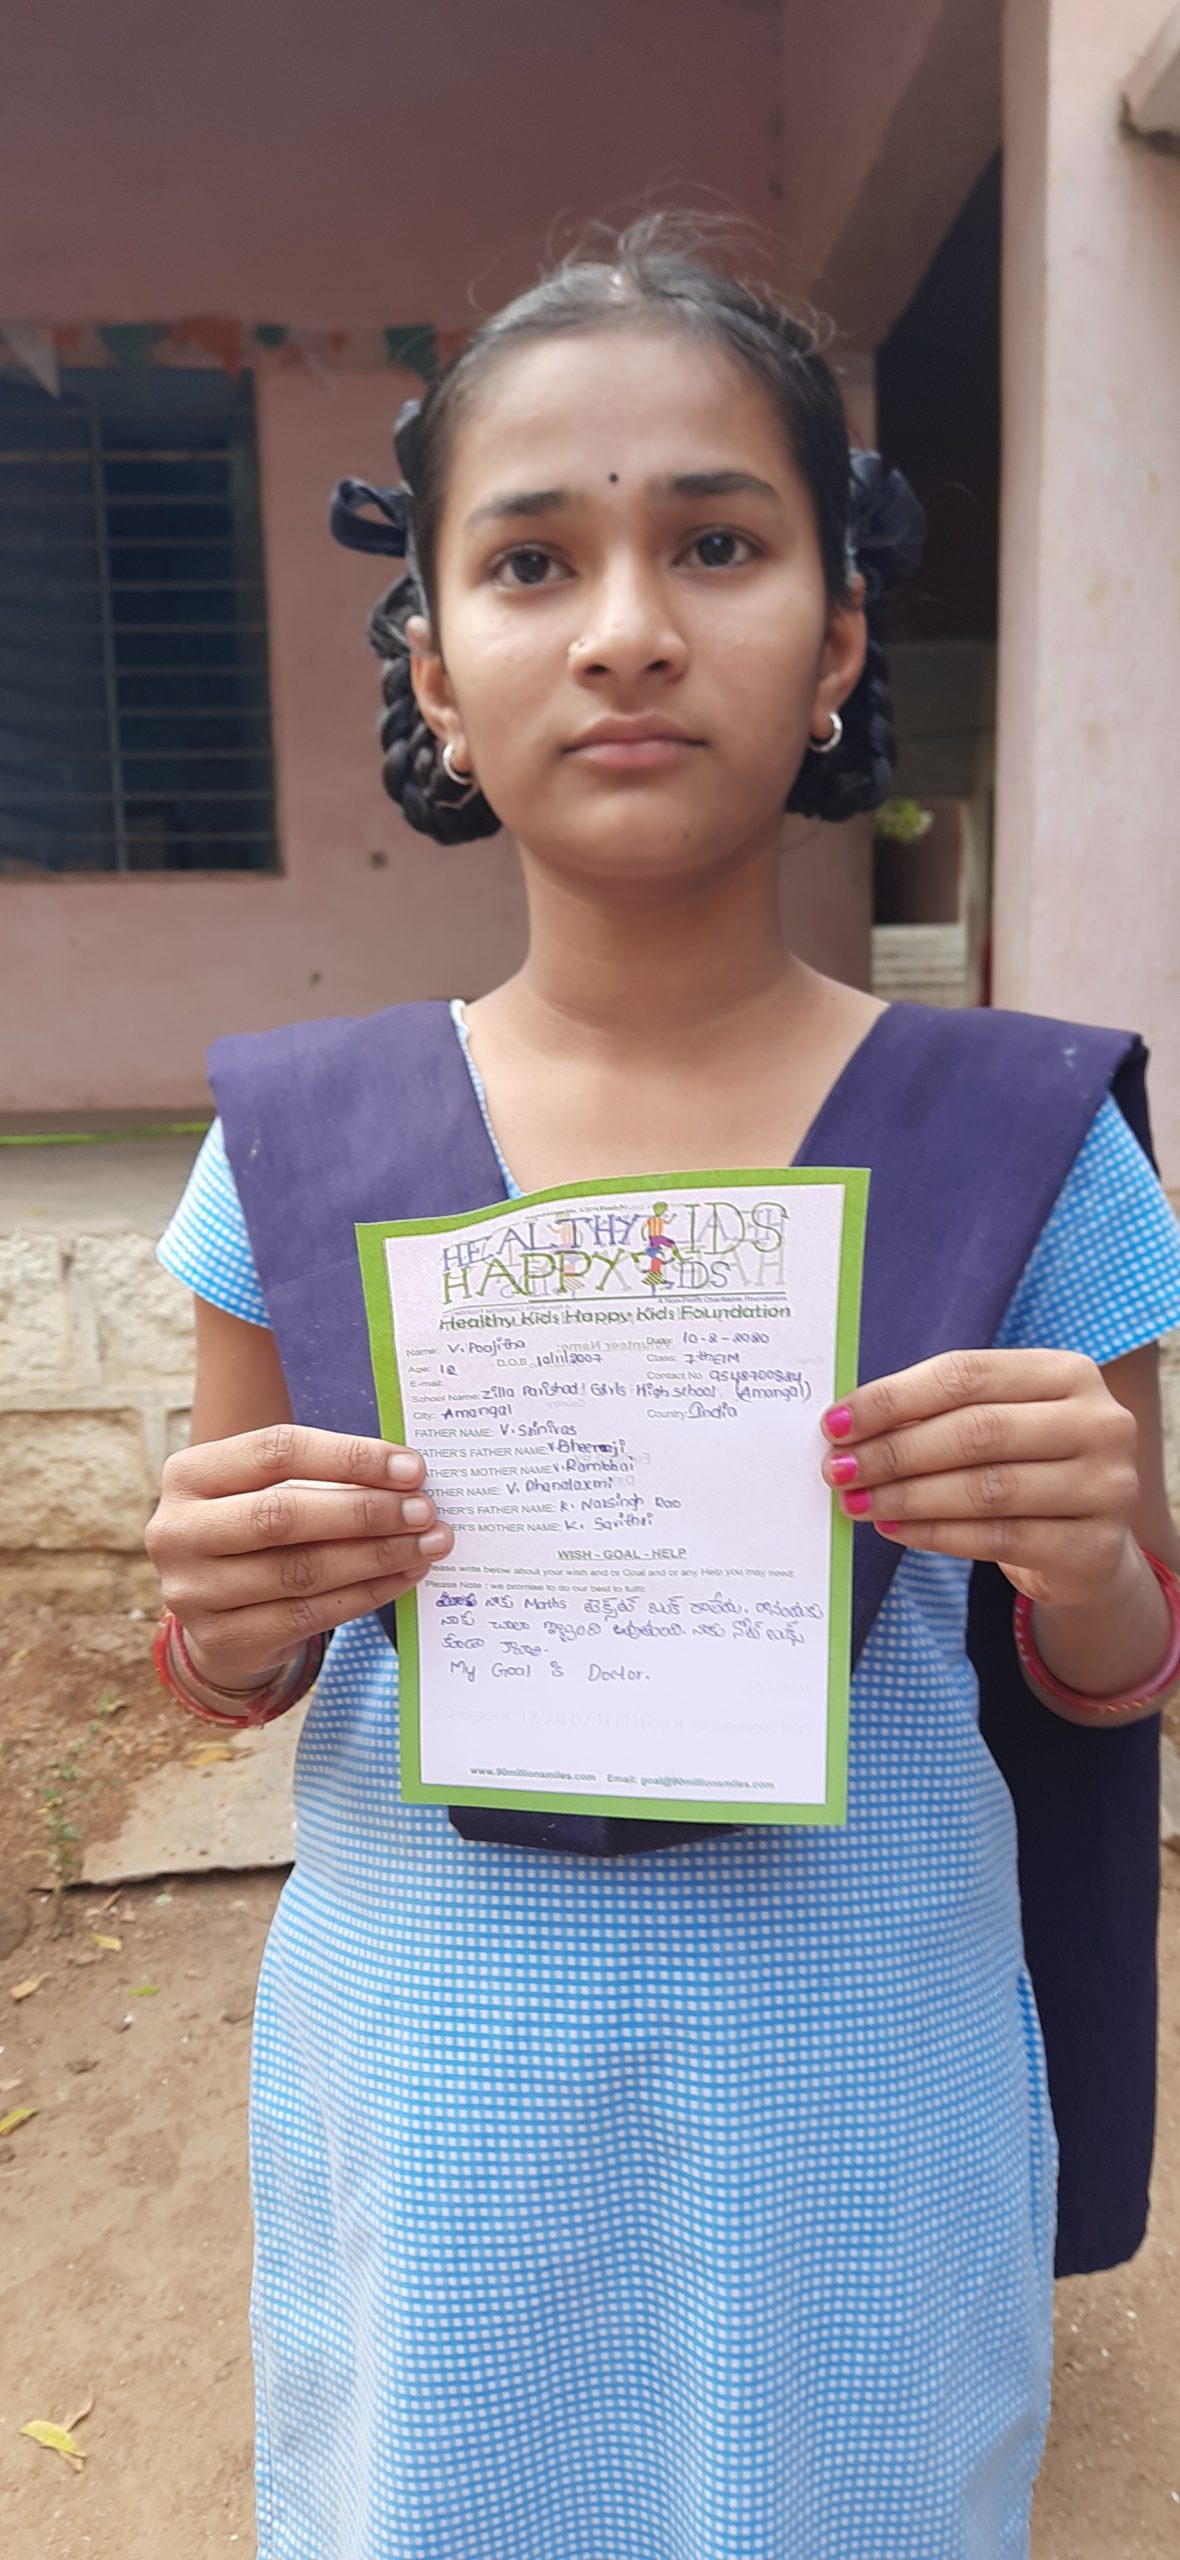 HEALTHY KIDS
HAPPY KIDS
A Non-Profit Charitable Foundation
Healthy Kids Happy Kids Foundation
Name: V. Poojitha Date: 10-2-2020
Age: 12 D.O.B 10/11/2007 Class: 7th E/M
E-mail: Contact No
School Name: Zilla Parishad Girls High school (Amangal)
City: Amangal Country: India
FATHER NAME: V. Srinivas
FATHER'S FATHER NAME: V Bheeraji
FATHER'S MOTHER NAME: V. Rambhai
OTHER NAME: V. Dhanalaxmi
THER'S FATHER NAME: K. Narsingh Rao
ER'S MOTHER NAME: K. Savithri
WISH - GOAL - HELP
lease write below about your wish and or Goal and or any Help you may need:
Please Note : we promise to do our best to fulfil:
నాకు Maths బుక్ రాలేదు.
నాకు చాలా నాకు నోట్ బుక్స్
కూడా కావాలి.
My Goal is Doctor.
www.90millionsmiles.com Email: goal@90millionsmiles.com